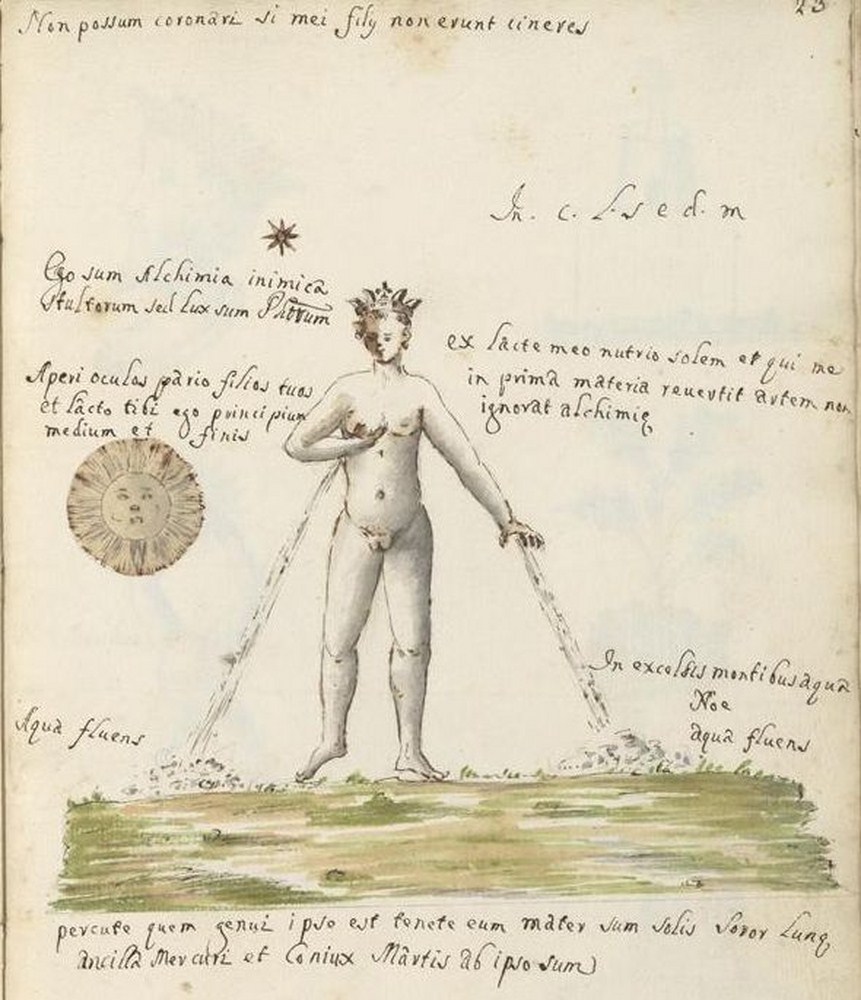 23
Non possum coronari si mei filij non erunt cineres
In. c. L. s e d. m
Ego sum Alchimia inimica
stultorum sed lux sum
Aperi oculos pario filios tuos
et lacto tibi ego principium
medium et finis
ex lacte meo nutrio solem et qui me
in prima materia revertit artem non
ignorat alchimię
In excelsis montibus aqua
Noe
aqua fluens
Aqua fluens
percute quem genui ipse est tenete eum mater sum solis soror Lunę
ancilla Mercuri et Coniux Martis ab ipso sum